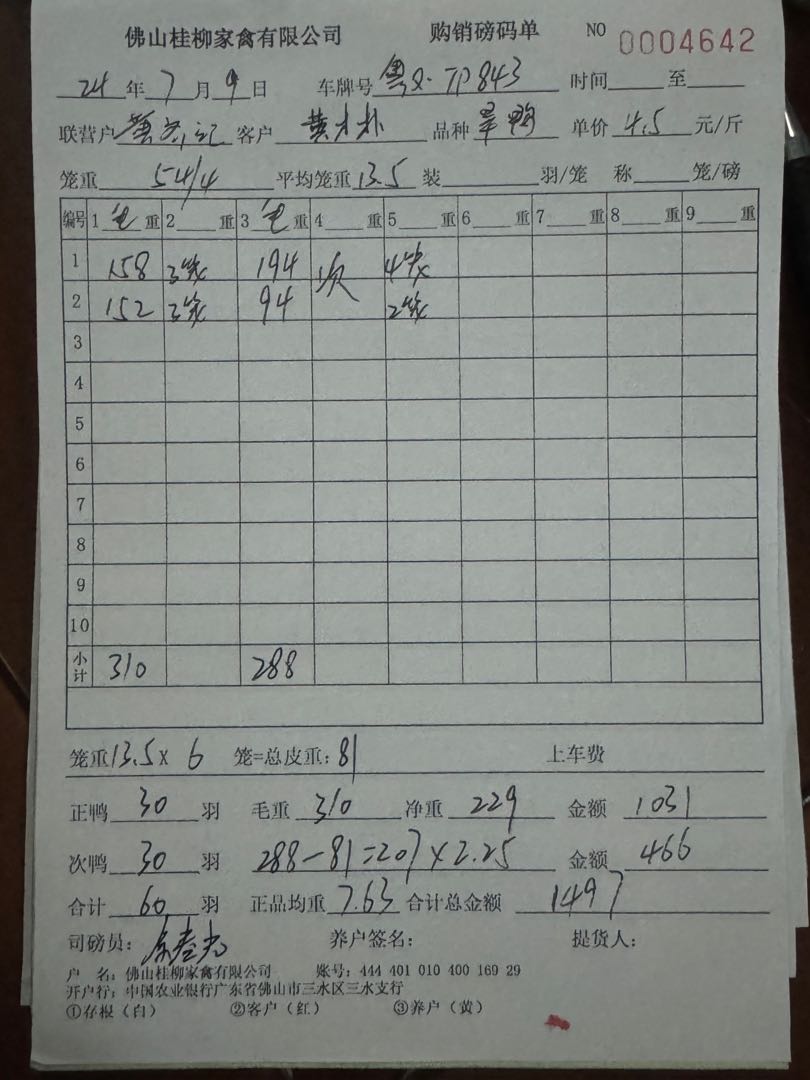 佛山桂柳家禽有限公司 购销磅码单 NO 0004642
24年7月9日 车牌号 粤 TP843 时间 至
联营户 客户 黄 品种 单价 4.5 元/斤
笼重 54/4 平均笼重 13.5 装 羽/笼 称 笼/磅
编号 1 重 2 重 3 重 4 重 5 重 6 重 7 重 8 重 9 重
1 158 3笼 194 次 4笼
2 152 3笼 94 2笼
3
4
5
6
7
8
9
10
小计 310 288
笼重13.5×6 笼=总皮重:81 上车费
正鸭 30 羽 毛重 310 净重 229 金额 1031
次鸭 30 羽 288-81=207×2.25 金额 466
合计 60 羽 正品均重 7.63 合计总金额 1497
司磅员: 养户签名: 提货人:
户 名:佛山桂柳家禽有限公司 账号:444 401 010 400 169 29
开户行:中国农业银行广东省佛山市三水区三水支行
①存根(白) ②客户(红) ③养户(黄)